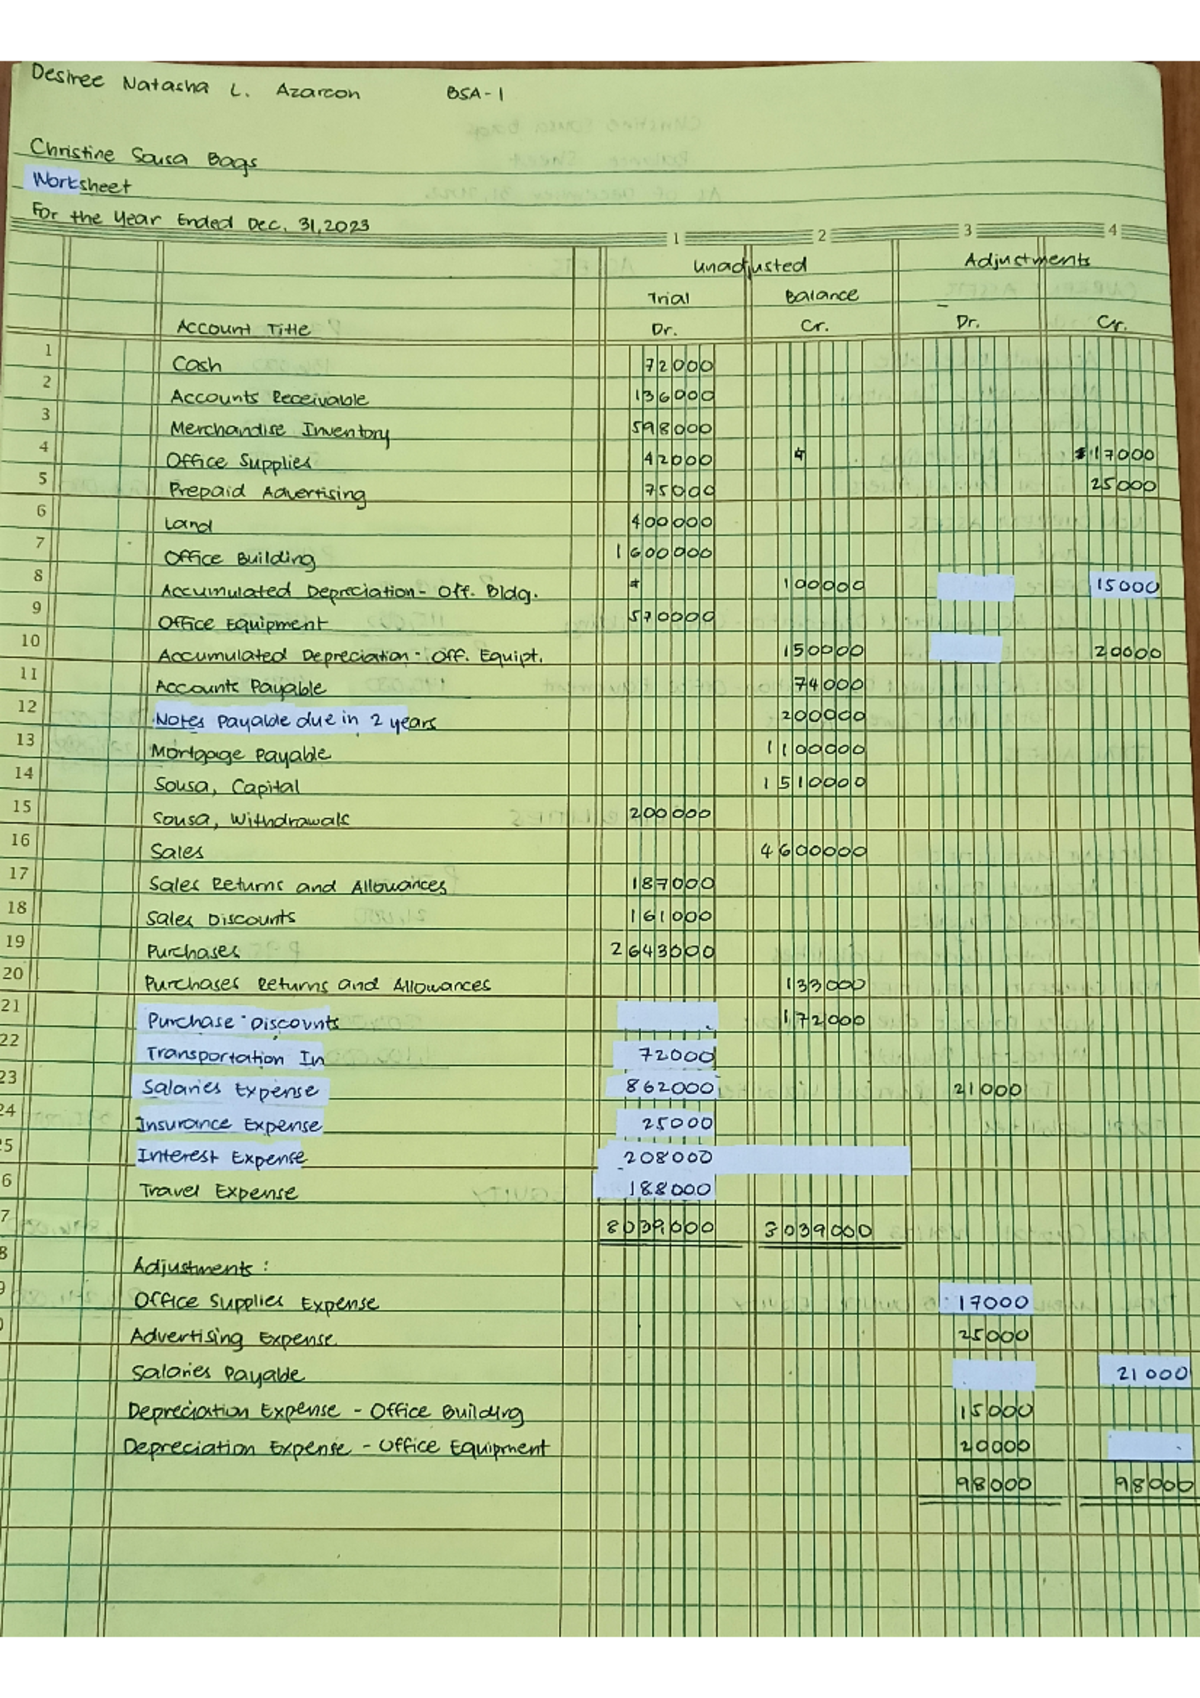 Desiree Natasha L. Azarcon BSA-1
Christine Sousa Bags
Worksheet
For the Year Ended Dec. 31, 2023
1 2 3 4
Unadjusted Adjustments
Trial Balance
Account Title Dr. Cr. Dr. Cr.
1 Cash 72000
2 Accounts Receivable 136000
3 Merchandise Inventory 598000
4 Office Supplies 42000 17000
5 Prepaid Advertising 75000 25000
6 Land 400000
7 Office Building 1600000
8 Accumulated Depreciation - Off. Bldg. 100000 15000
9 Office Equipment 570000
10 Accumulated Depreciation - Off. Equipt. 150000 20000
11 Accounts Payable 74000
12 Notes Payable due in 2 years 200000
13 Mortgage Payable 1100000
14 Sousa, Capital 1510000
15 Sousa, Withdrawals 200000
16 Sales 4600000
17 Sales Returns and Allowances 187000
18 Sales Discounts 161000
19 Purchases 2643000
20 Purchases Returns and Allowances 133000
21 Purchase Discounts 172000
22 Transportation In 72000
23 Salaries Expense 862000 21000
24 Insurance Expense 25000
5 Interest Expense 208000
6 Travel Expense 188000
7 8039000 8039000
8 Adjustments:
9 Office Supplies Expense 17000
Advertising Expense 25000
Salaries Payable 21000
Depreciation Expense - Office Building 15000
Depreciation Expense - Office Equipment 20000
98000 98000